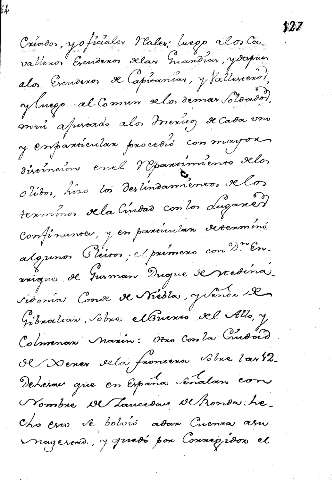 127
Criados, y oficiales Reales; luego a los Ca-
valleros Escuderos de las Guardias, y despues
a los Escuderos de Capitanias, y Vallesteros,
y luego al Comun de los demas Soldados,
mui ajustado a los Meritos de Cada uno
y en particular procedio con mayor
distincion en el Repartimiento de los
oficios, hizo los deslindamientos de los
terminos de la Ciudad con los Lugares
confinantes, y en particular determinó
algunos Pleitos; el primero con Dn. En-
rrique de Guzman Duque de Medina
sidonia Conde de Niebla, y Señor de
Gibraltar, sobre el Puerto del Alto, y
Colmenar Marin: otro con la Ciudad
de Xerez de la frontera sobre las 12
Dehesas que en España señalan con
Nombre de Zaucedas de Ronda: he-
cho esto se bolvió a dar Cuenta a su
Magestad, y quedó por Corregidor el